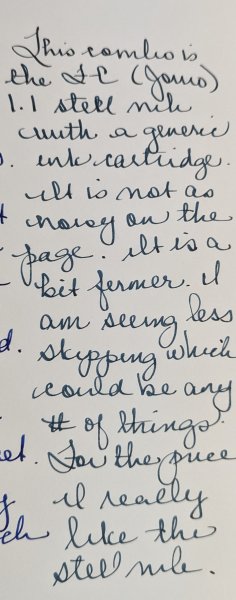 This combo is
the FC (Jowo)
1.1 stell nib
with a generic
ink cartridge.
It is not as
noisy on the
page. It is a
bit fermer. I
am seeing less
skypping which
could be any
# of things.
For the price
I really
like the
stell nib.